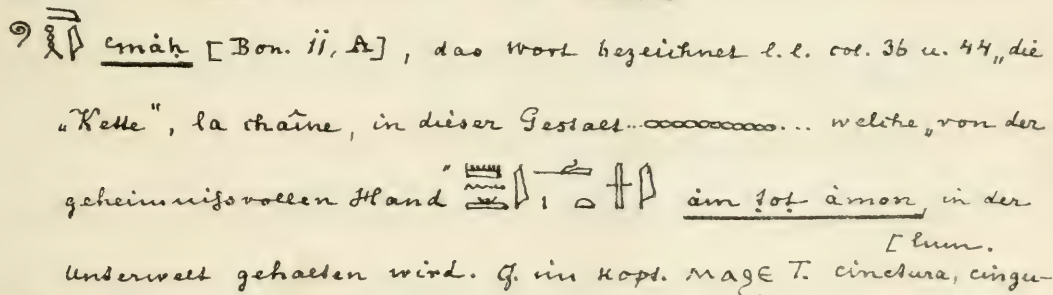 emȧh [Bon. ii, A], das wort bezeichnet l. l. col. 36 u. 44 „die
„Kette“, la chaîne, in dieser Gestalt ... welche „von der
geheimnißvollen Hand“ ȧm ṭot ȧmon, in der
[lum.
Unterwelt gehalten wird. Cf. im Kopt. ⲙⲁϩⲉ T. cinctura, cingu-